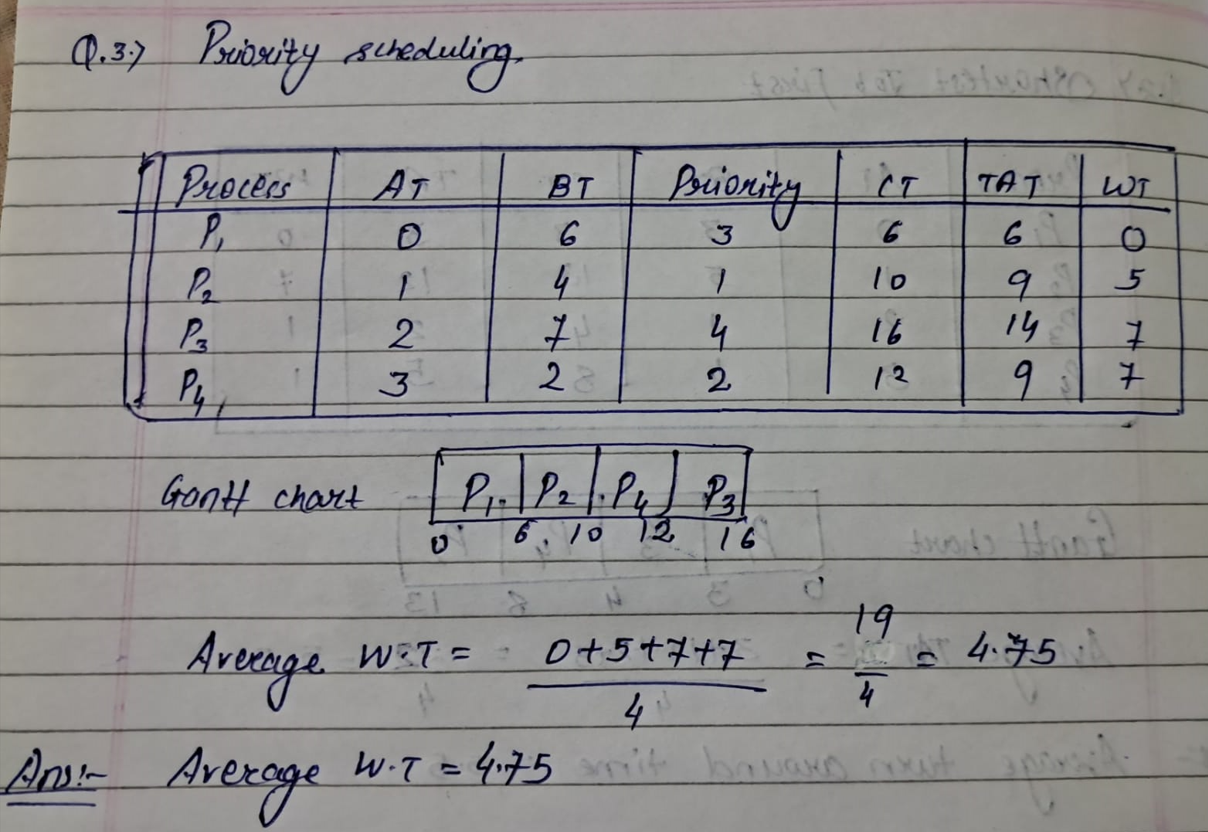 Q.3.) Priority scheduling.
Process AT BT Priority CT TAT WT
P1 0 6 3 6 6 0
P2 1 4 1 10 9 5
P3 2 7 4 16 14 7
P4 3 2 2 12 9 7
Gantt chart P1 P2 P4 P3
0 6 10 12 16
Average W.T = 0+5+7+7/4 = 19/4 = 4.75
Ans:- Average W.T = 4.75